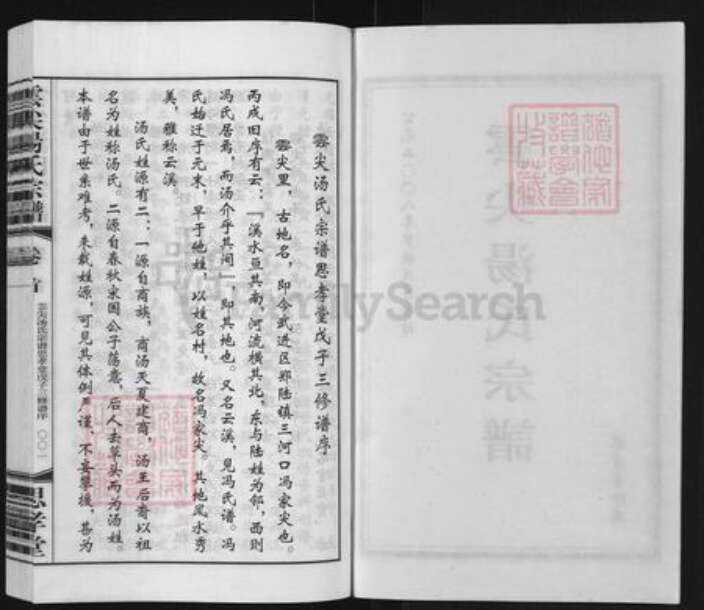 雲尖汤氏宗谱思孝堂戊子三修谱序
雲尖里,古地名,即今武进区郑陆镇三河口冯家尖也。
丙戌旧序有云:「溪水亘其南,河流横其北,东与陆姓为邻,西则
冯氏居焉,而汤介乎其间」,即其地也。又名云溪,见冯氏谱。冯
氏始迁于元末,早于他姓,以姓名村,故名冯家尖。其地风水秀
美,雅称云溪
汤氏姓源有二:一源自商族,商汤灭夏建商,汤王后裔以祖
名为姓称汤氏。二源自春秋宋国公子荡意,后人去草头而为汤姓。
本谱由于世系难考,未载姓源,可见其体例严谨,不妄攀援,甚为
汤氏宗譜
卷首
雲尖汤氏宗谱思孝堂戊子三修谱序 〇〇一
思孝堂
FamilySearch
湯氏宗譜
譜學會
收藏